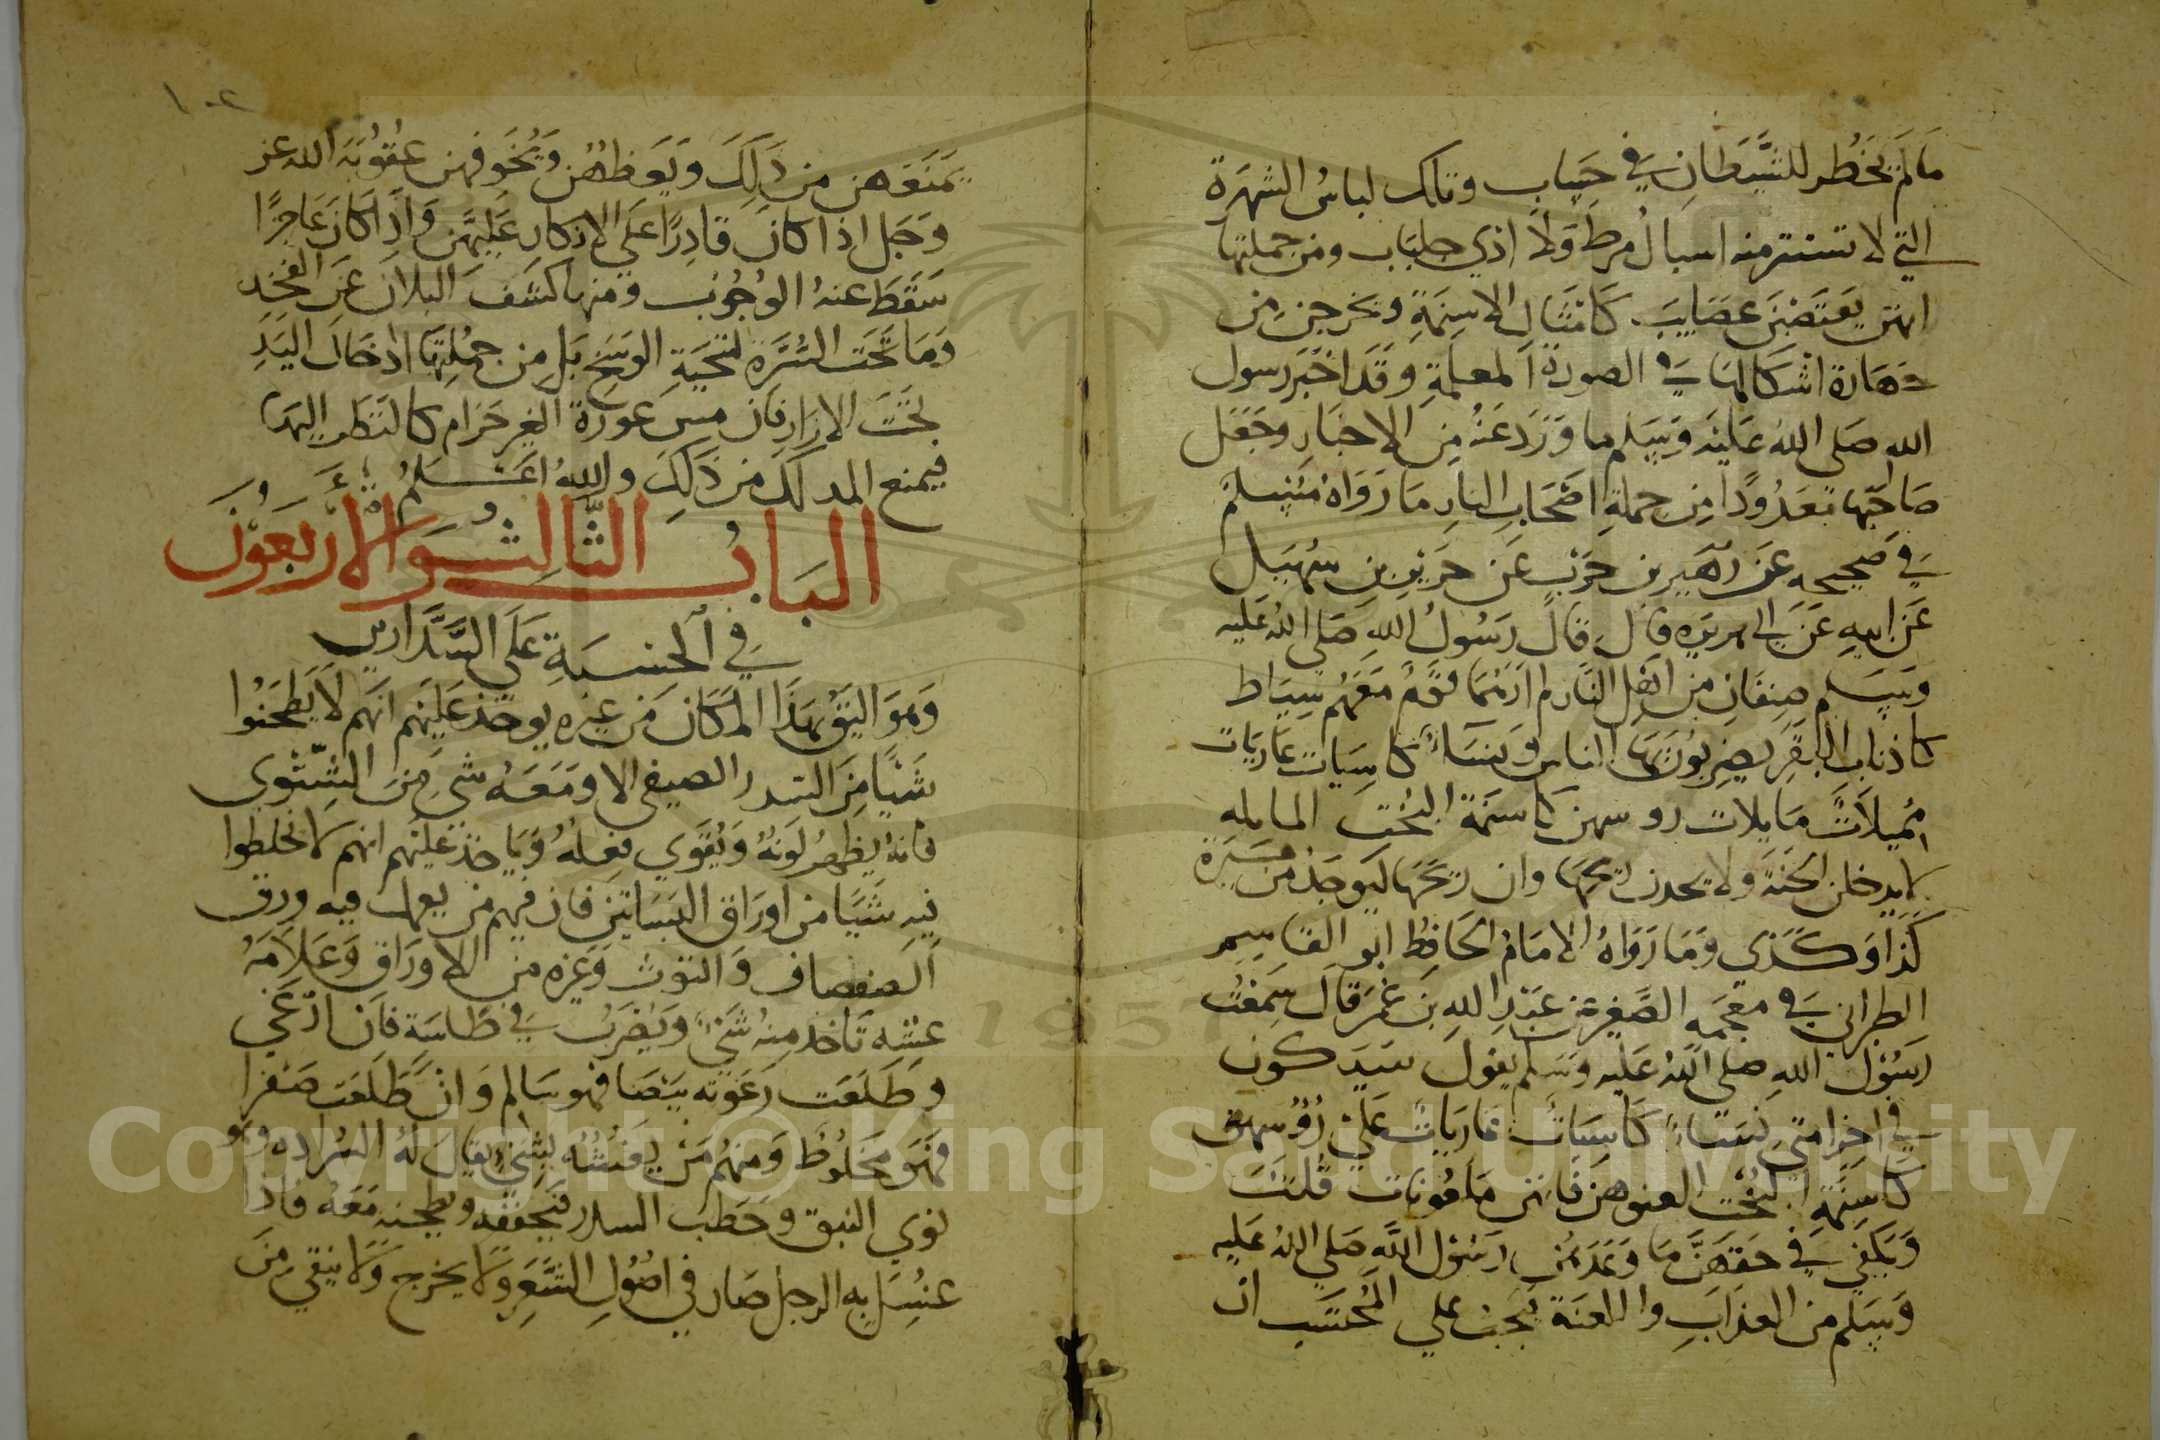 ما لم يخطر للشيطان في حساب وتلك لباس الشهرة
التي لا تستتر منه اسبال مرط ولا اذي جلباب ومن جملتها
انهن يعتصبن عصايب كامثال الاسنمة ويخرجن من
جهارة اشكالها في الصورة المعلمة وقد اخبر رسول
الله صلى الله عليه وسلم ما ورد عنه من الاخبار وجعل
صاحبها معدودا من جملة اصحاب النار ما رواه مسلم
في صحيحه عن زهير بن حرب عن جرير بن سهيل
عن ابيه عن ابي هريره قال قال رسول الله صلى الله عليه
وسلم صنفان من اهل النار لم ارهما قوم معهم سياط
كاذناب البقر يضربون بها الناس ونساء كاسيات عاريات
مميلات مايلات روسهن كاسنمة البخت المايله
لا يدخلن الجنة ولا يجدن ريحها وان ريحها ليوجد من مسيرة
كذا وكذي وما رواه الامام الحافظ ابو القاسم
الطبراني في معجمه الصغير عن عبد الله بن عمر قال سمعت
رسول الله صلى الله عليه وسلم يقول سيكون
في اخر امتي نساء كاسيات عاريات علي رؤسهن
كاسنمة البخت العنوهن فانهن ملعونات قلت
ويكفي في حقهن ما وعدهن رسول الله صلي الله عليه
وسلم من العذاب واللعنة يجب علي المحتسب ان
١٠٢
يمنعهن من ذلك ويعظهن ويخوفهن عقوبة الله عز
وجل اذا كان قادرا علي الانكار عليهن واذا كان عاجزا
سقط عنه الوجوب ومنها كشف البلان عن الفخد
وما تحت السرة لتنحية الوسخ بل من جملتها ادخال اليد
تحت الازار فان مس عورة الغير حرام كالنظر اليها
فيمنع المدلك من ذلك والله اعلم
الباب الثالث والاربعون
في الحسبة على السدارين
وهو اليق بهذا المكان من غيره يوخذ عليهم انهم لا يطحنوا
شيا من السدر الصيفي الا ومعه شي من الشتوي
فانه يظهر لونه ويقوي فعله وياخذ عليهم انهم لا يخلطوا
فيه شيا من اوراق البساتين فان فيهم من يعمل فيه ورق
الصفصاف والتوث وغيره من الاوراق وعلامة
غشه تاخذ منه شي ويضرب في طاسة فان ارغي
وطلعت رغوته بيضا فهو سالم وان طلعت صفرا
فهو مخلوط ومنهم من يغشه بشي يقال له السراده وهو
نوي النبق وحطب السدر فيجففه ويطحنه معه فاذا
غسل به الرجل صار في اصول الشعر ولا يخرج ولا ينقي من